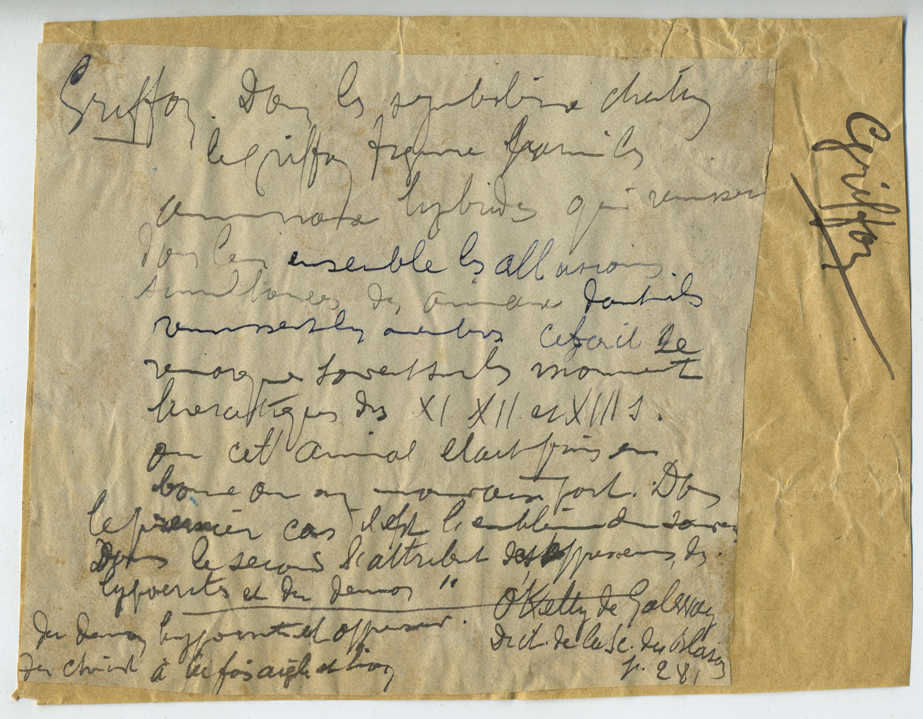 Griffon. Dans les symbolisme chrétien
le griffon figure parmi les
animaux hybrides qui réunissent
dans leur ensemble les allusions
simultanées des animaux dont ils
réunissent les
remarque souvent sur les monuments
des XI XII et XIII s.
où cet animal était pris en
bonne ou en mauvaise part. Dans
le premier cas il est l'emblème du sauveur
Dans le second l'attribut des oppresseurs, des
hypocrites et du démon "
O'Kelly de Galway
Dict. de la Sc. du Blason
p. 281
du démon hypocrite et oppresseur.
du christ à la fois aigle et lion
Griffon